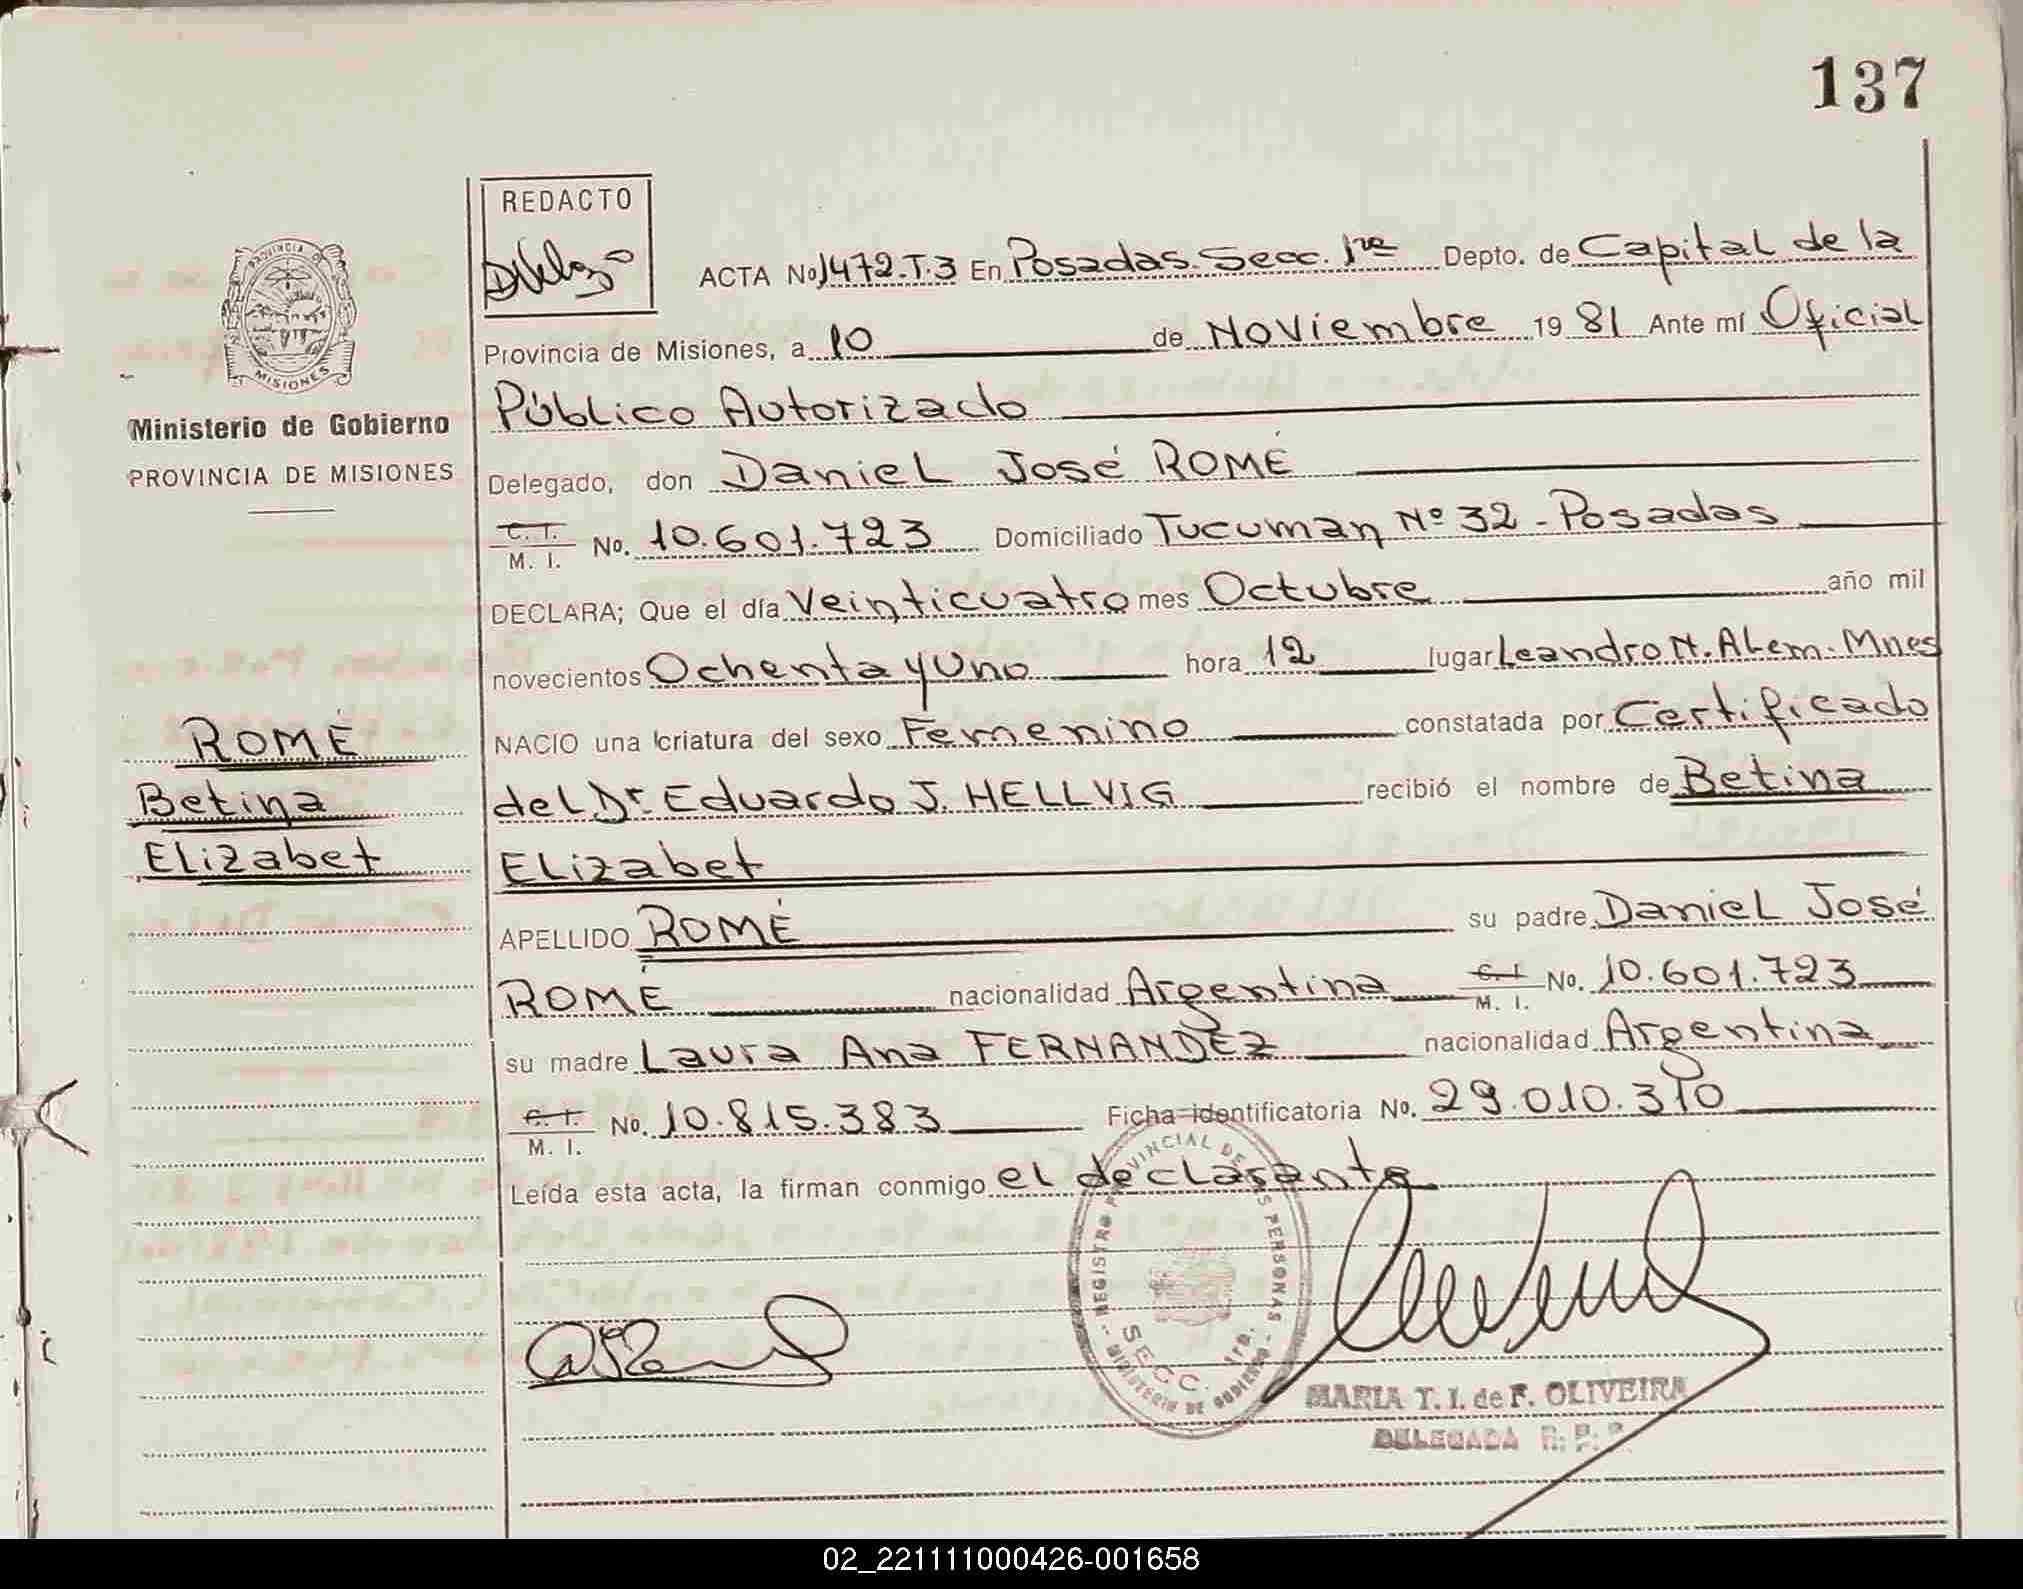 137
REDACTO
PROVINCIA D
MISIONES
Ministerio de Gobierno
PROVINCIA DE MISIONES
ACTA No 1472.T.3 En Posadas. Secc. 1ra Depto. de Capital de la
Provincia de Misiones, a 10 de Noviembre 19 81 Ante mí Oficial
Público Autorizado
Delegado, don Daniel José ROMÉ
C. I. M. I. No. 10.601.723 Domiciliado Tucuman Nº 32 - Posadas
DECLARA; Que el día Veinticuatro mes Octubre año mil
novecientos Ochenta y Uno hora 12 lugar Leandro N. Alem. Mnes
NACIO una criatura del sexo Femenino constatada por Certificado
del Dr. Eduardo J. HELLVIG recibió el nombre de Betina
Elizabet
APELLIDO ROMÉ su padre Daniel José
ROMÉ nacionalidad Argentina C. I. M. I. No. 10.601.723
su madre Laura Ana FERNANDEZ nacionalidad Argentina
C. I. M. I. No. 10.815.383 Ficha identificatoria No. 29.010.310
Leída esta acta, la firman conmigo el declarante
ROMÉ
Betina
Elizabet
REGISTRO PROVINCIAL DE LAS PERSONAS - MINISTERIO DE GOBIERNO -
SECC. 1ra.
MARIA T. I. de F. OLIVEIRA
DELEGADA R. P. P.
02_221111000426-001658